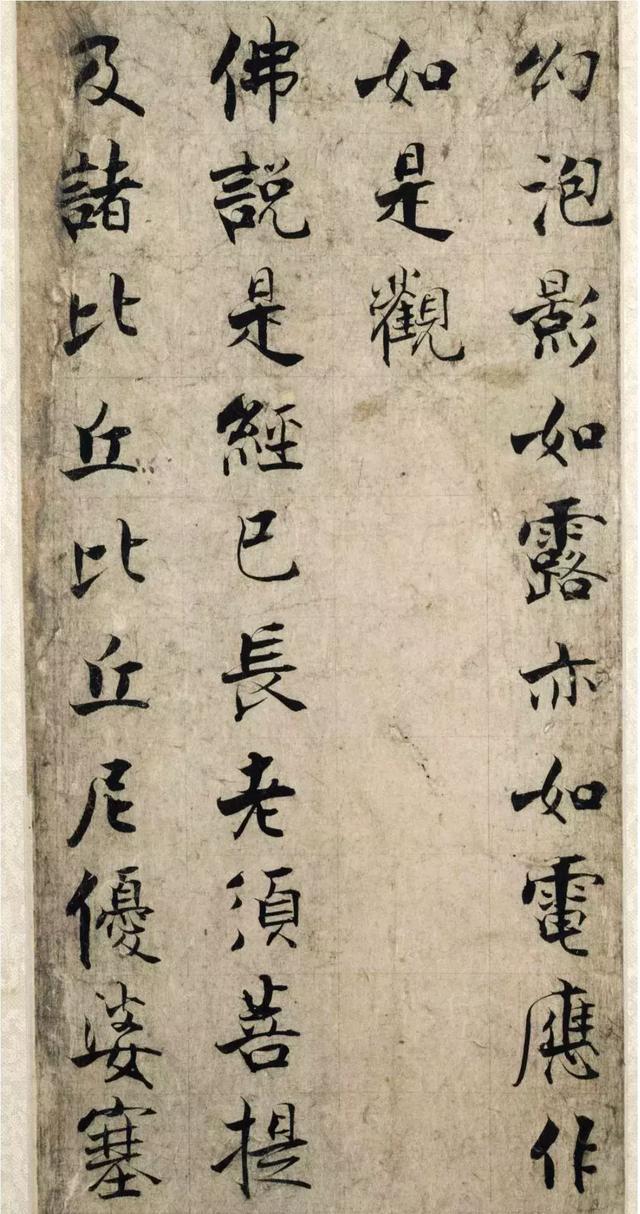 幻泡影如露亦如電應作
如是觀
佛説是經已長老須菩提
及諸比丘比丘尼優婆塞